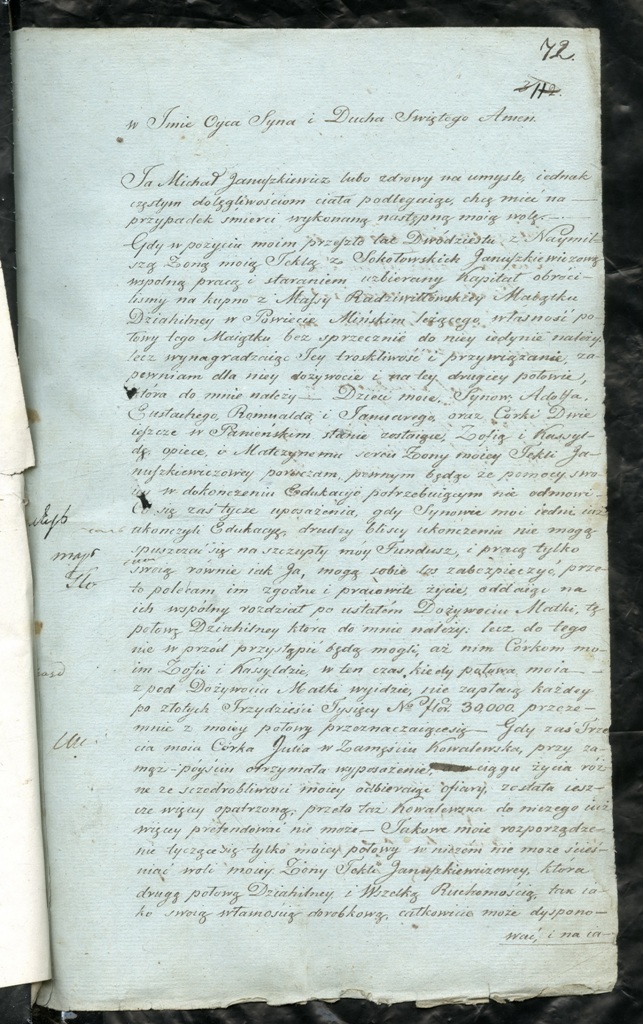 72.
w Imie Oyca Syna i Ducha Swiętego Amen.
Ja Michał Januszkiewicz lubo zdrowy na umysle, iednak
częstym dolęgliwościom ciała podlegaiąc, chcę mieć na
przypadek smierci wykonaną następną moią wolę.—
Gdy w pożyciu moim przeszło lat Dwódziestu z Naymil-
szą Zoną moią Teklą z Sokołowskich Januszkiewiczową
wspolną pracą i staraniem uzbierany Kapitał obróci-
lismy na kupno z Massy Radziwiłłowskiey Maiątku
Dziahilney w Powiecie Mińskim leżącego, własność po-
łowy tego Maiątku bez sprzecznie do niey iedynie należy,
lecz wynagradzaiąc Jey troskliwość i przywiązanie, za-
pewniam dla niey dożywocie i na tey drugiey połowie,
która do mnie należy— Dzieci moie, Synow, Adolfa,
Eustachego, Romualda, i Januarego, oraz Córki Dwie
ieszcze w Panieńskim stanie zostaiące, Zofią i Kassyl-
dę, opiece, i Matczynemu sercu Zony moiey Tekli Ja-
nuszkiewiczowey poruczam, pewnym będąc że pomocy swo-
iey w dokonczeniu Edukacyi potrzebuiącym nie odmowi
Co się zaś tycze uposażenia, gdy Synowie moi iedni iuż
ukonczyli Edukacyą, drudzy bliscy ukonczenia nie mogą
spuszczać się na szczupły móy Fundusz, i pracą tylko
swoią równie iak Ja, mogą sobie los zabezpieczyć, prze-
to polecam im zgodne i pracowite życie, oddaiąc na
ich wspolny rozdział po ustałem Dożywociu Matki, tę
połowę Dziahilney która do mnie należy: lecz do tego
nie w przód przystąpić będą mogli, aż nim Córkom mo-
im Zofii i Kassyldzie, w ten czas, kiedy połowa moia—
z pod Dożywocia Matki wyidzie, nie zapłacą każdey
po złotych Trzydzieści Tysięcy No flor 30,000. przeze-
mnie z moiey połowy przeznaczaiącesię— Gdy zaś Trze-
cia moia Córka Julia w Zamęściu Kowalewska, przy za-
mąż póyściu otrzymała wyposażenie, w ciągu życia róż-
ne ze szczodrobliwości moiey odbieraiąc ofiary, została iesz-
cze więcey opatrzoną, przeto taż Kowalewska do niczego iuż
więcey pretendować nie może— Takowe moie rozporządze-
nie tyczącesię tylko moiey połowy w niczem nie może ścieś-
niać woli moiey Zony Tekli Januszkiewiczowey, która
drugą połową Dziahilney i Wszelką Ruchomością, tak ia-
ko swoią własnością dorobkową, całkowicie może dyspono-
wać, i na ca-